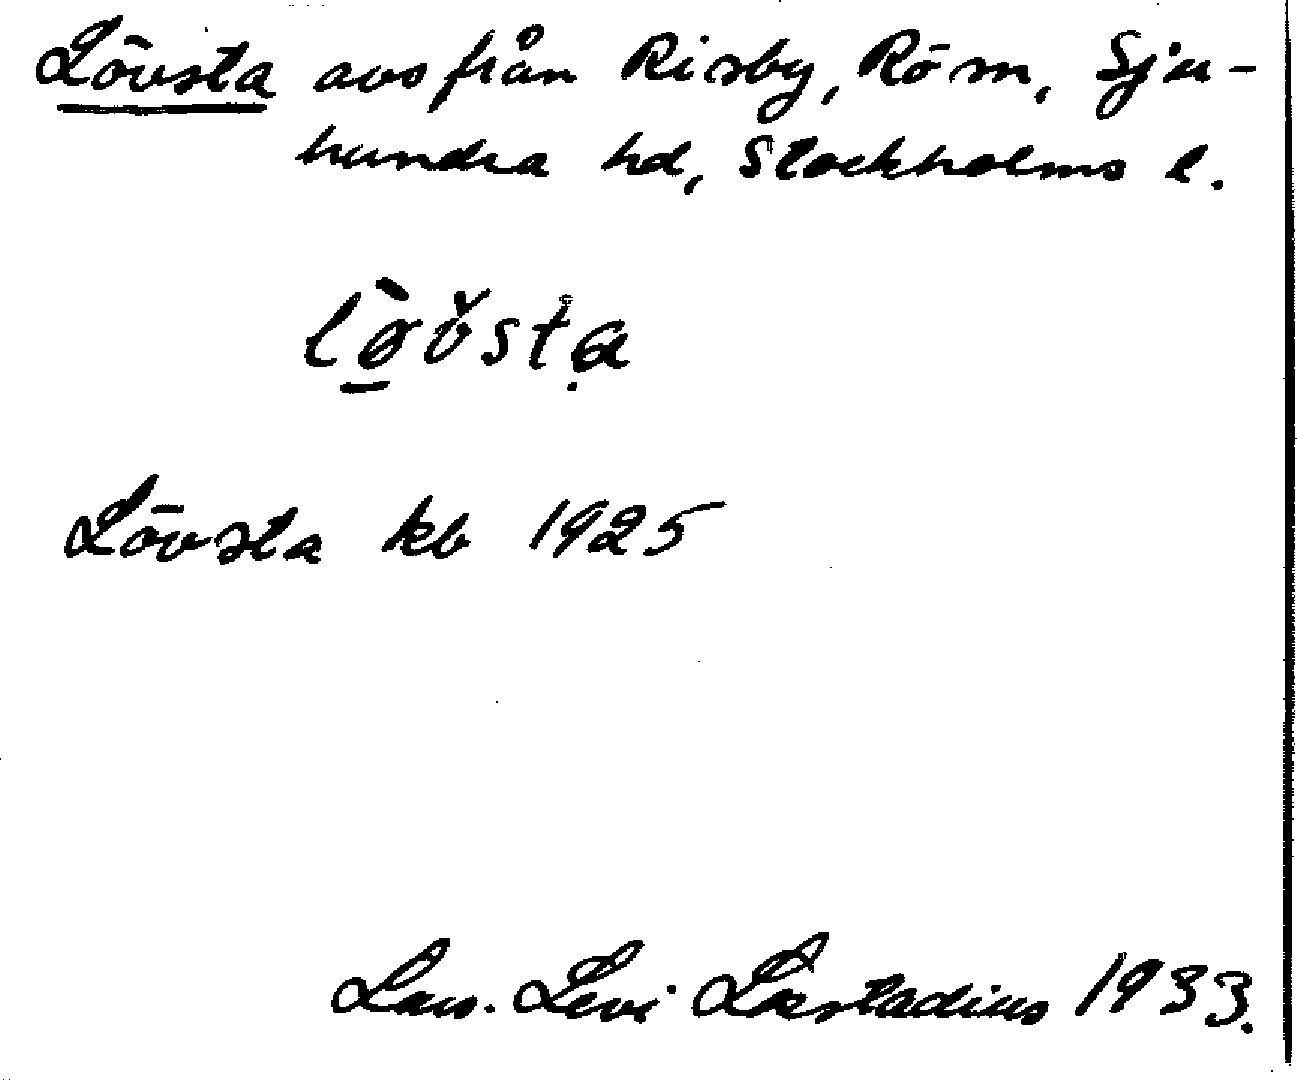 Lövsta avs från Risby, Rö sn, Sju-
hundra hd, Stockholms l.
Lövsta kb 1925
Lars-Levi Læstadius 1933.